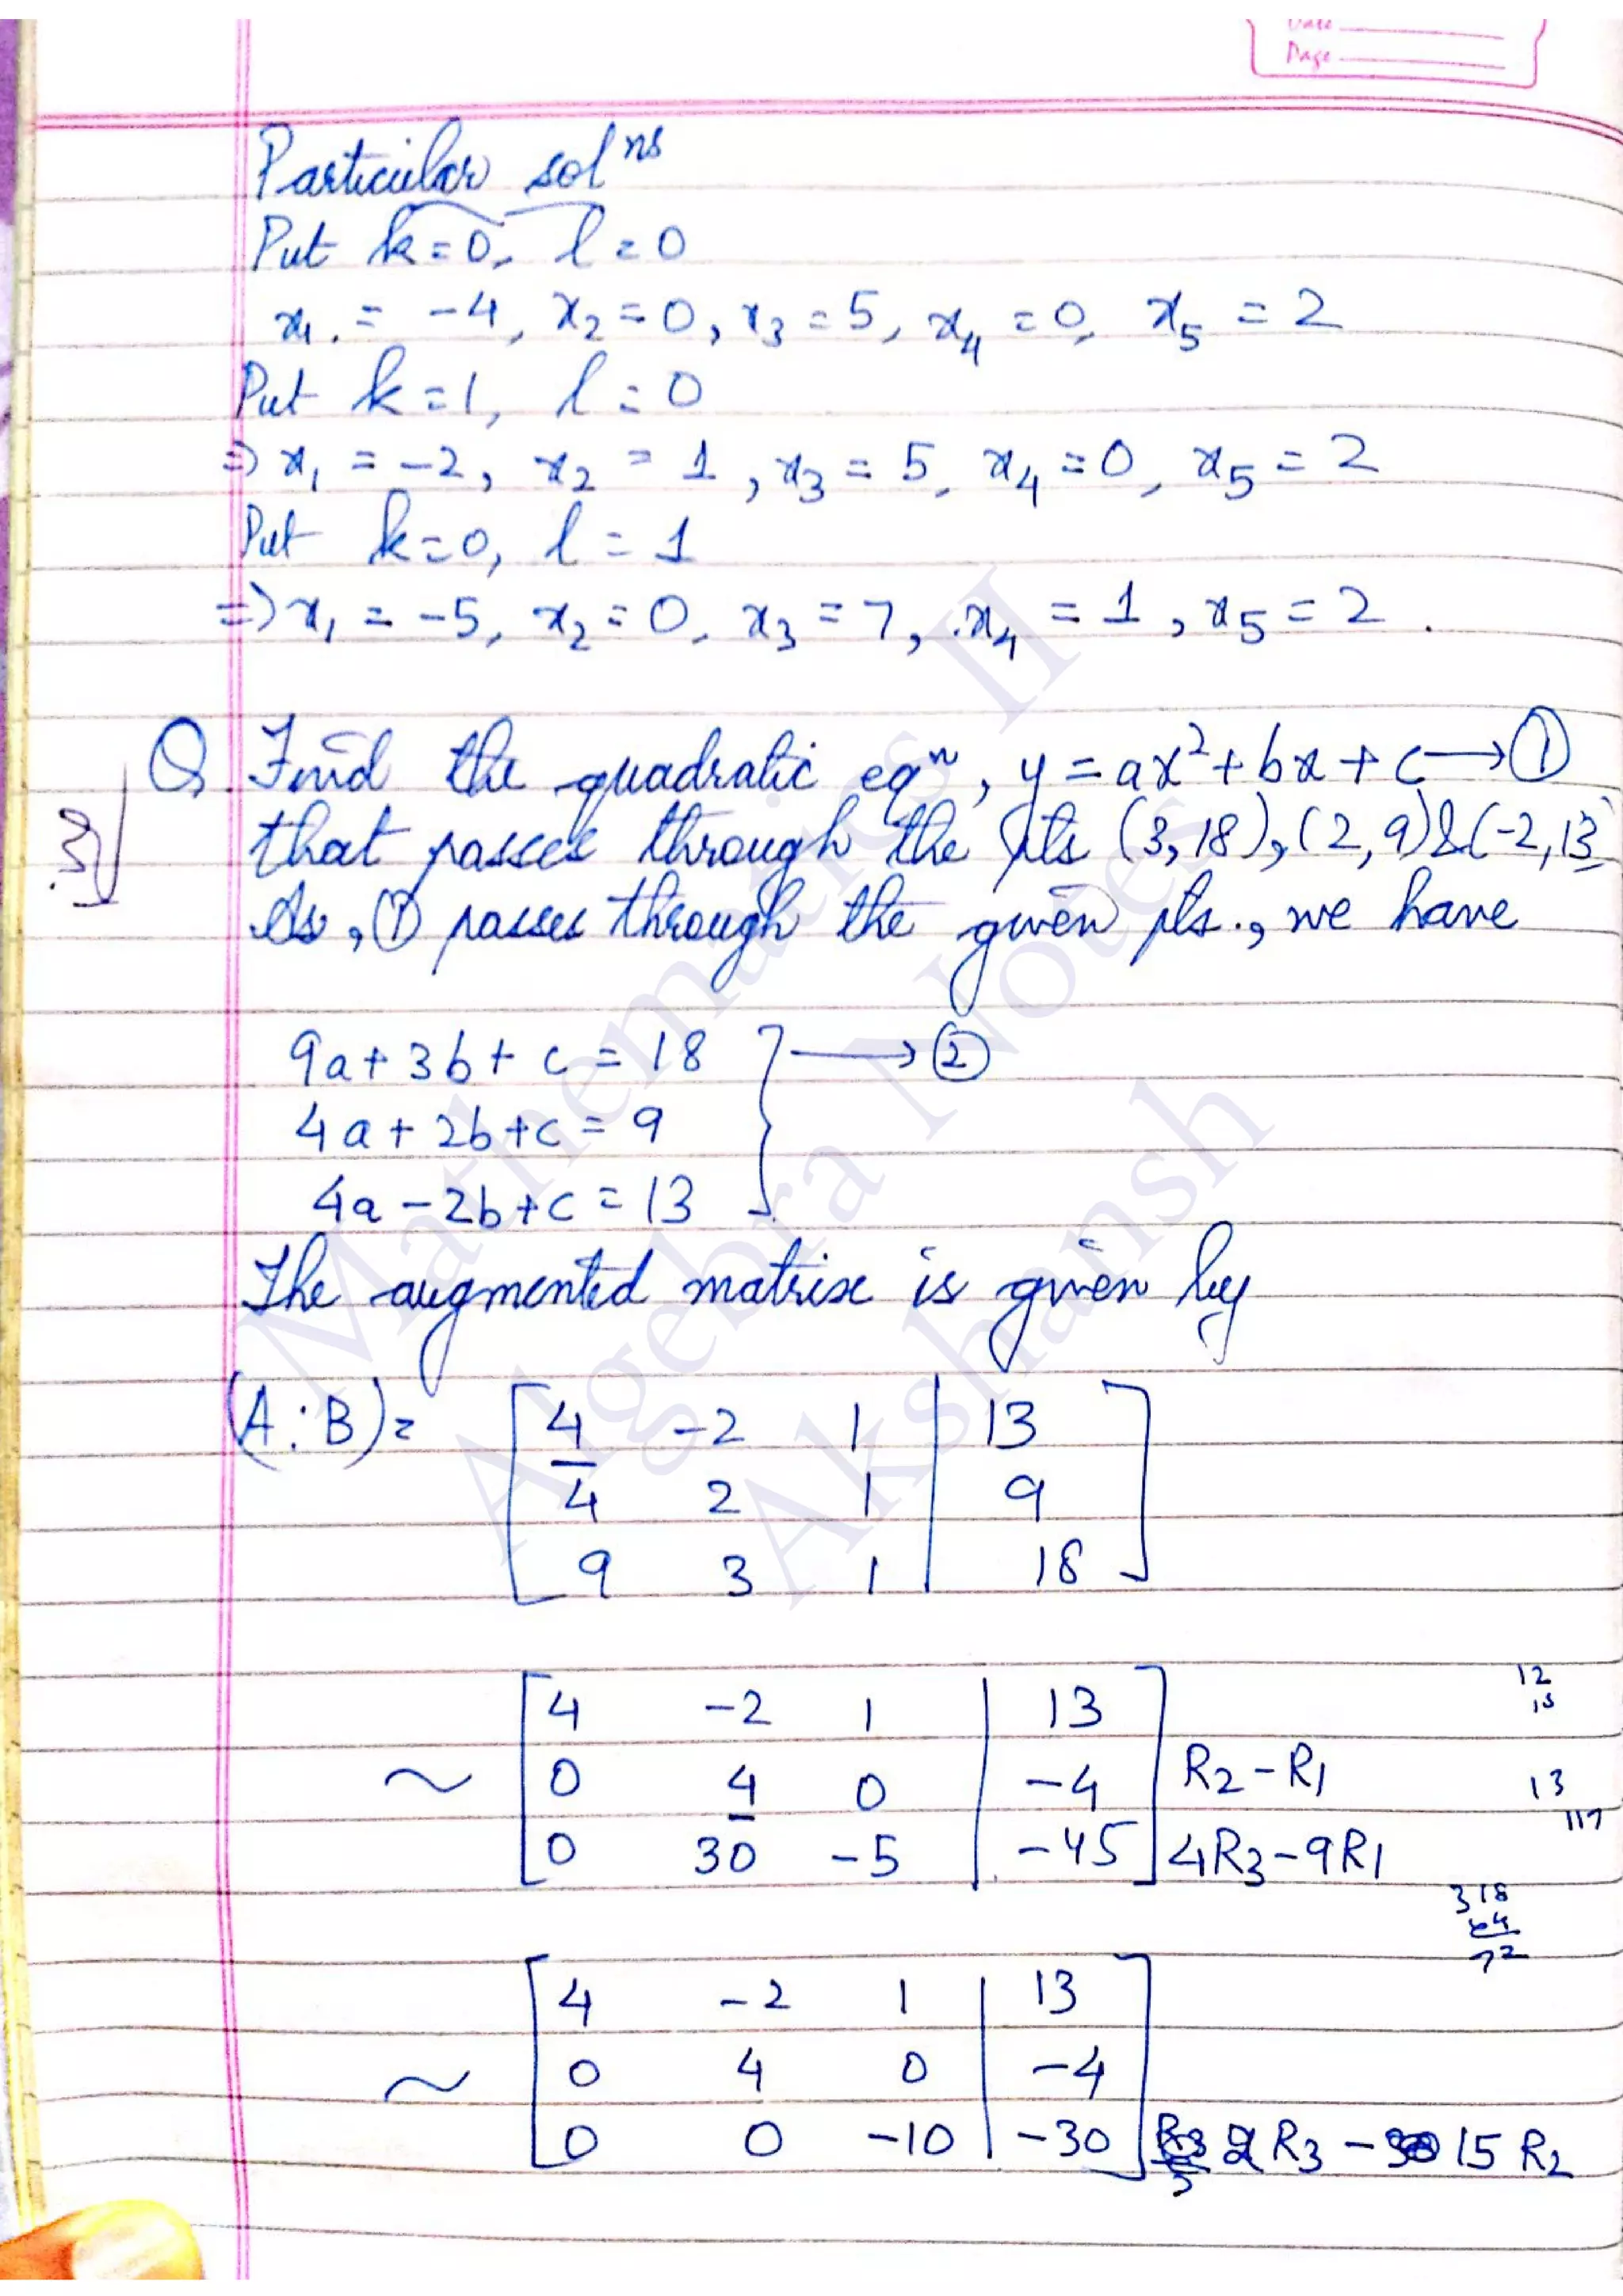 Date
Page
Particular sol ns
Put k=0, l=0
x1 = -4, x2=0, x3=5, x4=0, x5=2
Put k=1, l=0
⇒ x1 = -2, x2 = 1, x3=5, x4=0, x5=2
Put k=0, l=1
⇒ x1 = -5, x2=0, x3=7, x4=1, x5=2.
Q. Find the quadratic eqn, y=ax²+bx+c → ①
that passes through the pts (3,18), (2,9) & (-2,13
As, ① passes through the given pts., we have
9a+3b+c=18 } → ②
4a+2b+c=9
4a-2b+c=13
The augmented matrix is given by
(A:B)= [ 4 -2 1 | 13
4 2 1 | 9
9 3 1 | 18 ]
12
~ [ 4 -2 1 | 13
0 4 0 | -4 R2-R1 13
117
0 30 -5 | -45 ] 4R3-9R1
318
x4
72
~ [ 4 -2 1 | 13
0 4 0 | -4
0 0 -10 | -30 ] 2R3-15R2
Mathematics II
Algebra Notes
Akshansh